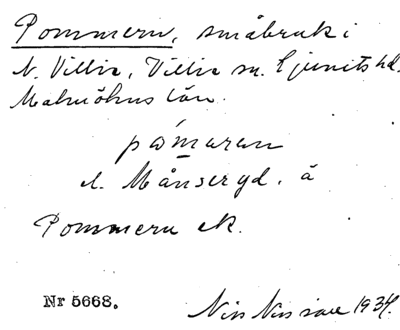 Pommern, småbruk i
N. Villie, Villie sn. Ljunits hd.
Malmöhus län.
påmaran
el. Månseryd. å
Pommern ek.
Nr 5668.
Nils Nilsson 1934.